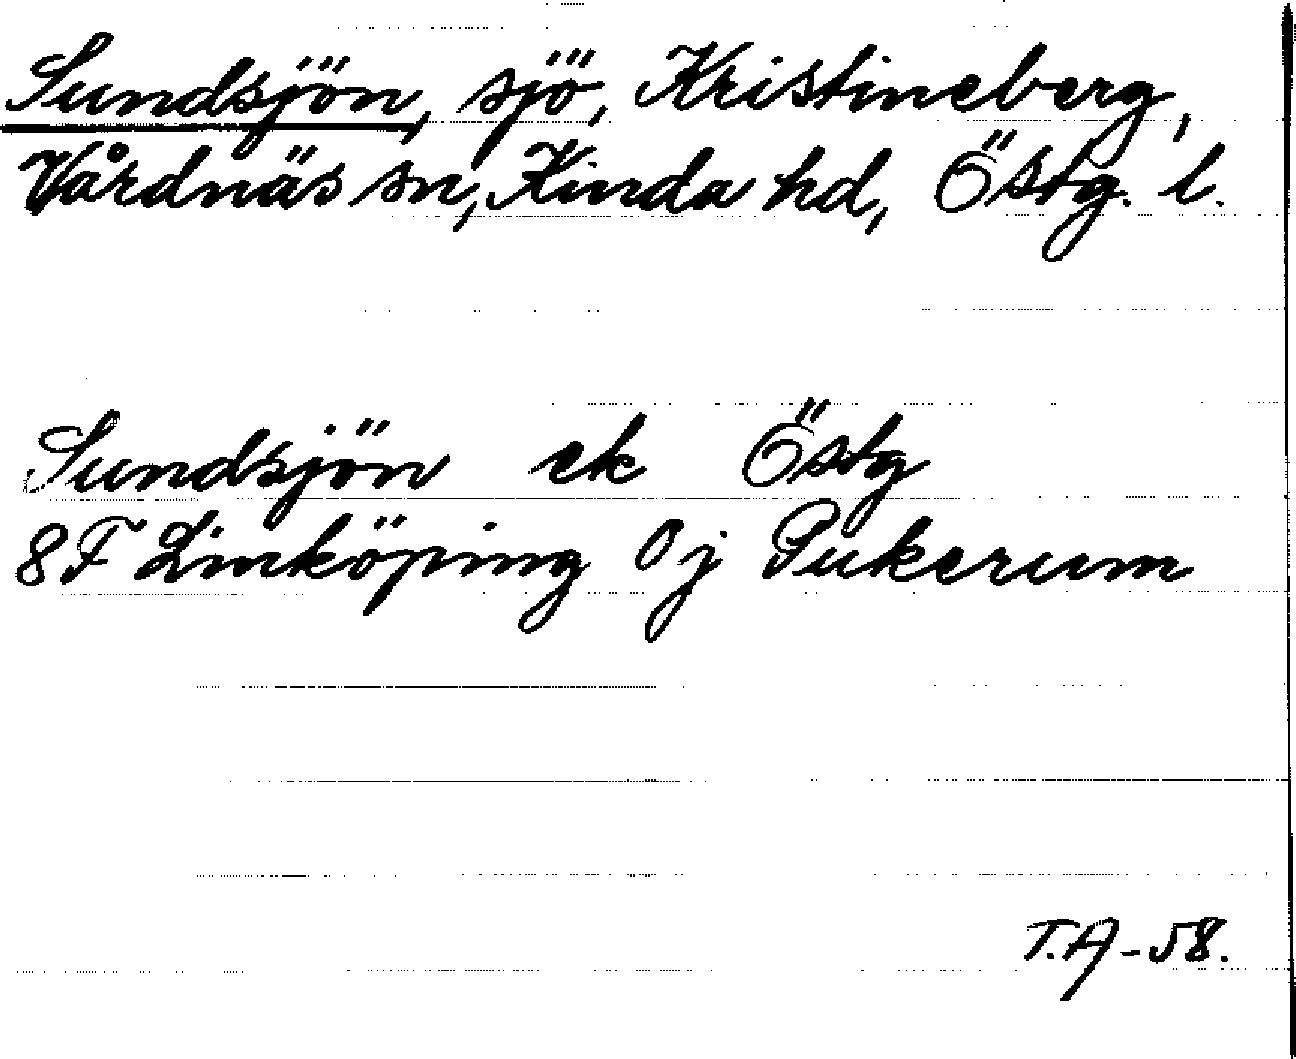 Sundsjön, sjö, Kristineberg,
Vårdnäs sn, Kinda hd, Östg. l.
Sundsjön ek Östg
8F Linköping 0j Pukerum
T.A-58.